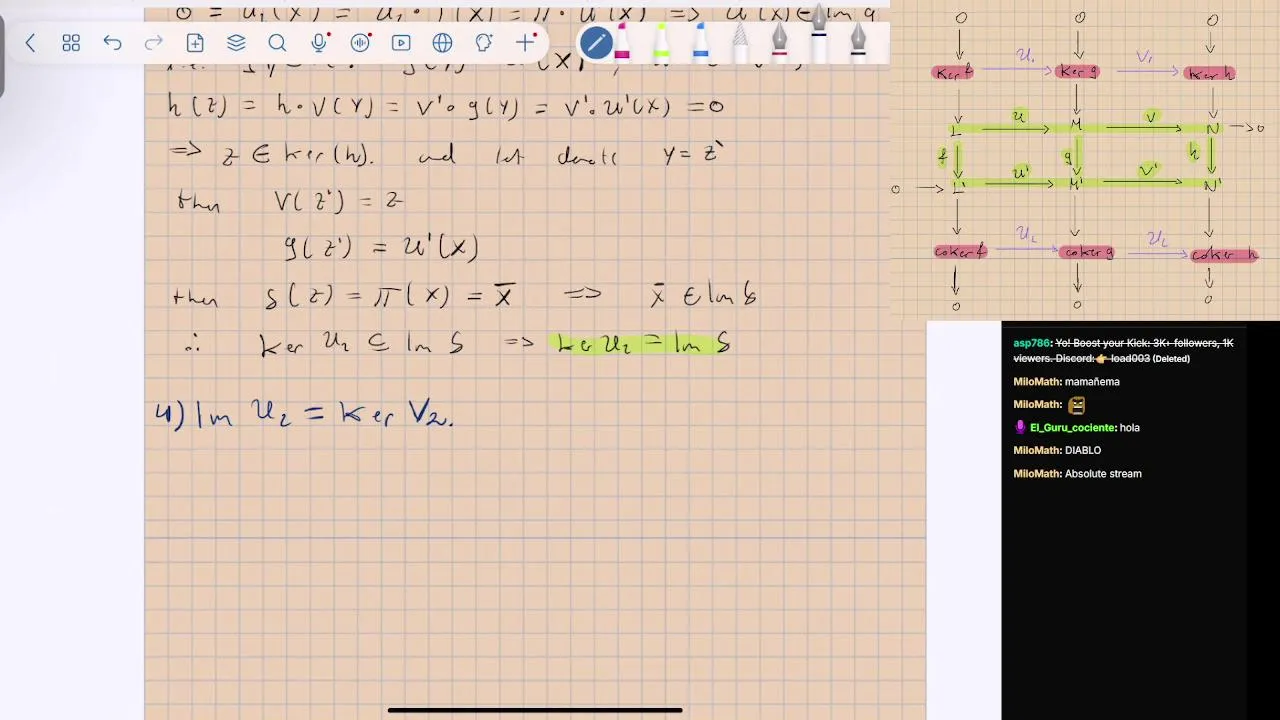 h(z) = h∘V(Y) = V'∘g(Y) = V'∘u'(x) = 0
=> z ∈ ker(h). and let denote y = z'
then V(z') = z
g(z') = u'(x)
then δ(z) = π(x) = x̄ => x̄ ∈ Im δ
∴ ker u₂ ⊆ Im δ => ker u₂ = Im δ
4) Im u₂ = ker V₂.
0 0 0
ker f u₁ ker g V₁ ker h
u v
L M N → 0
f g h
u' V'
0 → L' M' N'
u₂ u₂
coker f coker g coker h
0 0 0
asp786: Yo! Boost your Kick: 3K+ followers, 1K
viewers. Discord: 👉 load003 (Deleted)
MiloMath: mamañema
MiloMath:
El_Guru_cociente: hola
MiloMath: DIABLO
MiloMath: Absolute stream